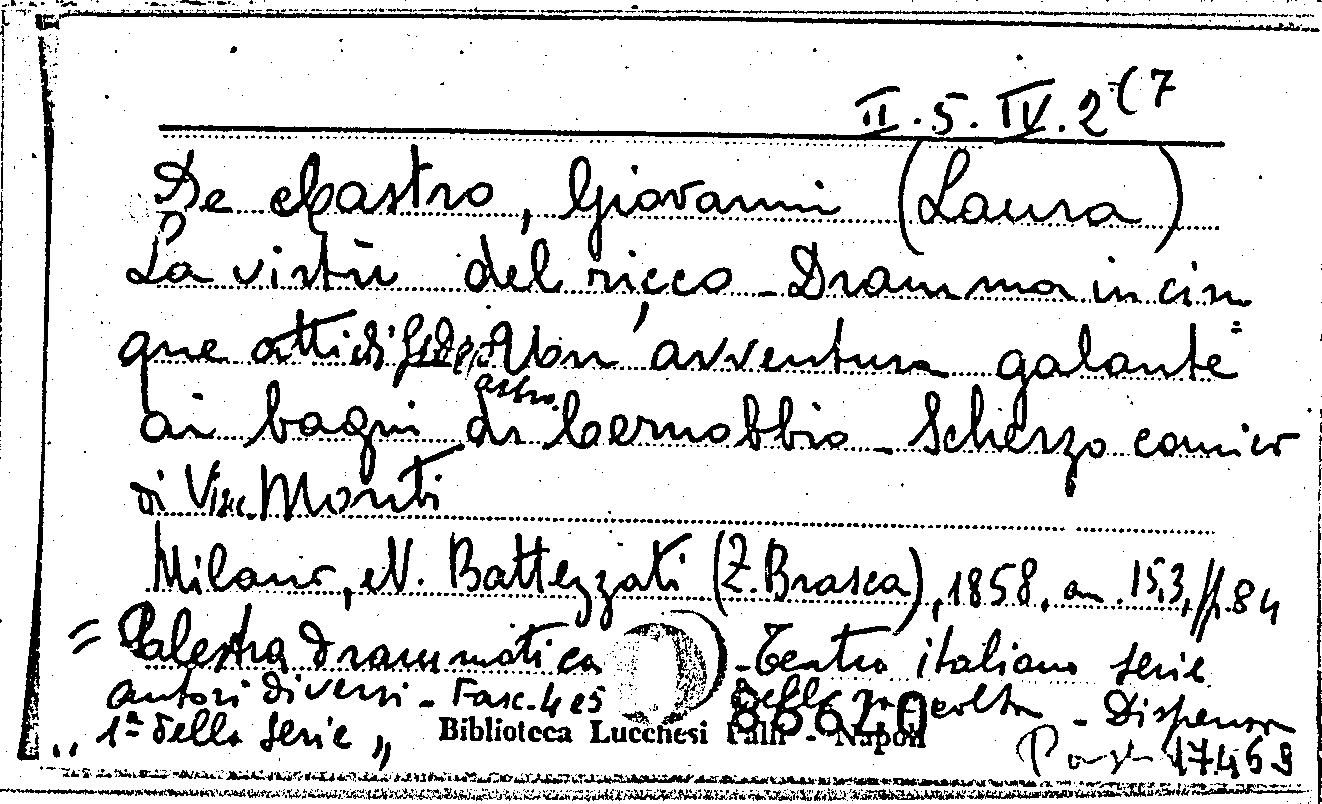 II.5.IV.2(7
De Castro, Giovanni (Laura)
La virtù del ricco - Dramma in cin=
que atti di G. De Un'avventura galante
astro.
ai bagni di Cernobbio - Scherzo comico
di Vinc. Monti
Milano, N. Battezzati (Z. Brasca), 1858, cm. 15,3, pp. 84
= Palestra drammatica - Teatro italiano serie
autori diversi - Fasc. 4 e 5 della raccolta - Dispensa
„ 1ª della serie „ Biblioteca Lucchesi Palli - Napoli
17469